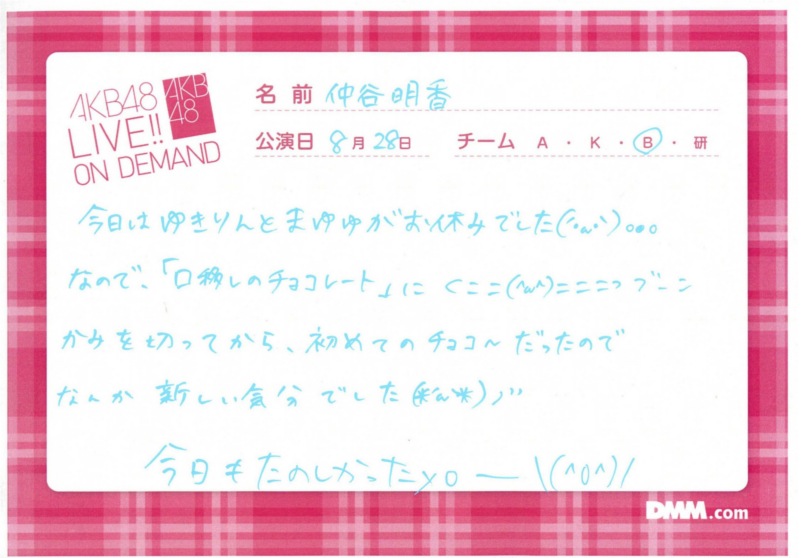 AKB48
LIVE!!
ON DEMAND
AKB
48
名前 仲谷明香
公演日 8月28日 チーム A・K・B・研
今日はゆきりんとまゆゆがお休みでした(´･ω･`)。。。
なので、「口移しのチョコレート」に ⊂ニニ(^ω^)ニニニ⊃ ブーン
かみを切ってから、初めてのチョコ〜だったので
なんか 新しい気分でした(*´ω`*)ノ"
今日もたのしかったyoー \(^o^)/
DMM.com